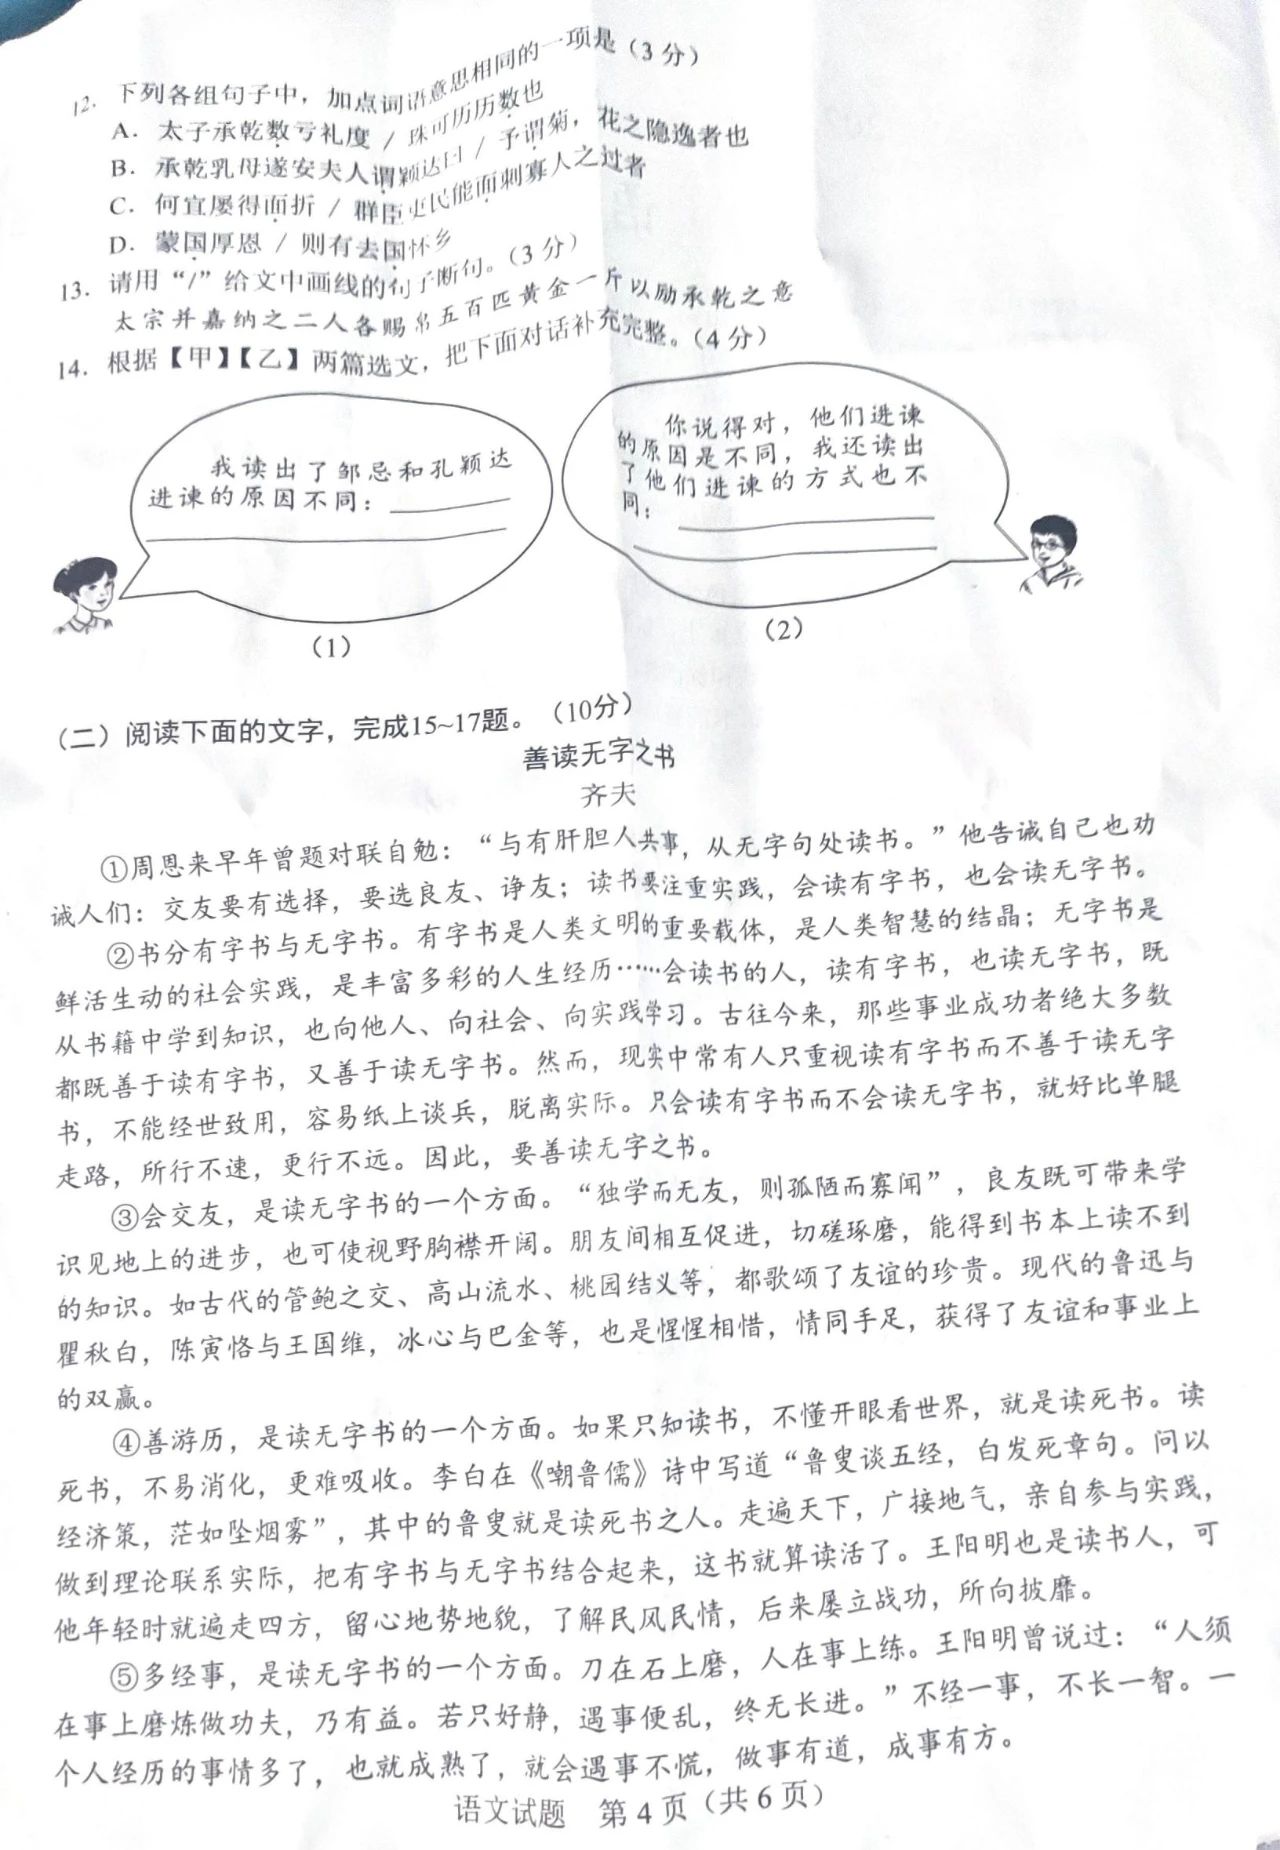 12. 下列各组句子中，加点词语意思相同的一项是（3分）
A. 太子承乾数亏礼度 / 珠可历历数也
B. 承乾乳母遂安夫人谓颖达曰 / 予谓菊，花之隐逸者也
C. 何宜屡得面折 / 群臣吏民能面刺寡人之过者
D. 蒙国厚恩 / 则有去国怀乡
13. 请用“/”给文中画线的句子断句。（3分）
太宗并嘉纳之二人各赐帛五百匹黄金一斤以励承乾之意
14. 根据【甲】【乙】两篇选文，把下面对话补充完整。（4分）
我读出了邹忌和孔颖达
进谏的原因不同：
（1）
你说得对，他们进谏
的原因是不同，我还读出
了他们进谏的方式也不
同：
（2）
（二）阅读下面的文字，完成15~17题。（10分）
善读无字之书
齐夫
①周恩来早年曾题对联自勉：“与有肝胆人共事，从无字句处读书。”他告诫自己也劝
诫人们：交友要有选择，要选良友、诤友；读书要注重实践，会读有字书，也会读无字书。
②书分有字书与无字书。有字书是人类文明的重要载体，是人类智慧的结晶；无字书是
鲜活生动的社会实践，是丰富多彩的人生经历……会读书的人，读有字书，也读无字书，既
从书籍中学到知识，也向他人、向社会、向实践学习。古往今来，那些事业成功者绝大多数
都既善于读有字书，又善于读无字书。然而，现实中常有人只重视读有字书而不善于读无字
书，不能经世致用，容易纸上谈兵，脱离实际。只会读有字书而不会读无字书，就好比单腿
走路，所行不速，更行不远。因此，要善读无字之书。
③会交友，是读无字书的一个方面。“独学而无友，则孤陋而寡闻”，良友既可带来学
识见地上的进步，也可使视野胸襟开阔。朋友间相互促进，切磋琢磨，能得到书本上读不到
的知识。如古代的管鲍之交、高山流水、桃园结义等，都歌颂了友谊的珍贵。现代的鲁迅与
瞿秋白，陈寅恪与王国维，冰心与巴金等，也是惺惺相惜，情同手足，获得了友谊和事业上
的双赢。
④善游历，是读无字书的一个方面。如果只知读书，不懂开眼看世界，就是读死书。读
死书，不易消化，更难吸收。李白在《嘲鲁儒》诗中写道“鲁叟谈五经，白发死章句。问以
经济策，茫如坠烟雾”，其中的鲁叟就是读死书之人。走遍天下，广接地气，亲自参与实践，
做到理论联系实际，把有字书与无字书结合起来，这书就算读活了。王阳明也是读书人，可
他年轻时就遍走四方，留心地势地貌，了解民风民情，后来屡立战功，所向披靡。
⑤多经事，是读无字书的一个方面。刀在石上磨，人在事上练。王阳明曾说过：“人须
在事上磨炼做功夫，乃有益。若只好静，遇事便乱，终无长进。”不经一事，不长一智。一
个人经历的事情多了，也就成熟了，就会遇事不慌，做事有道，成事有方。
语文试题 第4页（共6页）